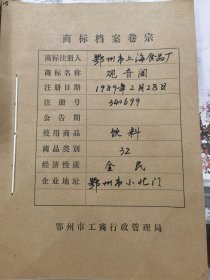 商标档案卷宗
商标注册人 鄂州市上海食品厂
商标名称 观音阁
注册日期 1989年2月28日
注册号 340699
公告期
使用商品 饮料
商品类别 32
经济性质 全民
企业地址 鄂州市小北门
鄂州市工商行政管理局